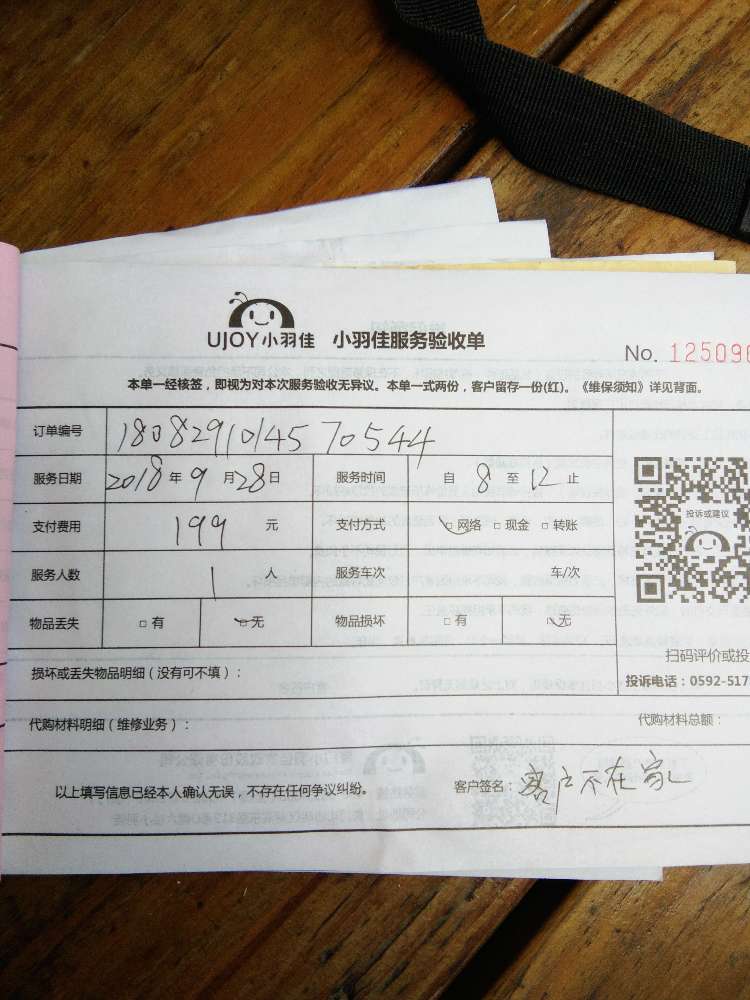 UJOY小羽佳 小羽佳服务验收单
No. 125096
本单一经核签，即视为对本次服务验收无异议。本单一式两份，客户留存一份(红)。《维保须知》详见背面。
订单编号 18082910145 70544
服务日期 2018年9月28日 服务时间 自 8 至 12 止
支付费用 199 元 支付方式 □网络 □现金 □转账
服务人数 1 人 服务车次 车/次
物品丢失 □有 □无 物品损坏 □有 □无
投诉或建议
扫码评价或投
投诉电话：0592-517
损坏或丢失物品明细（没有可不填）：
代购材料明细（维修业务）： 代购材料总额：
以上填写信息已经本人确认无误，不存在任何争议纠纷。 客户签名：客户不在家